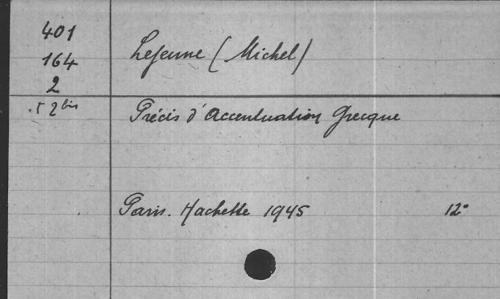 401
164
2
Lejeune (Michel)
52 bis
Précis d'Accentuation Grecque
Paris. Hachette 1945 12°